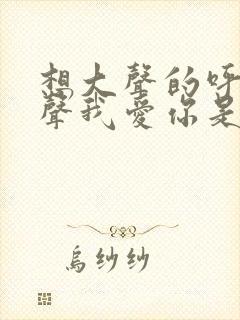 想大聲的呼
聲我愛你是
烏紗紗